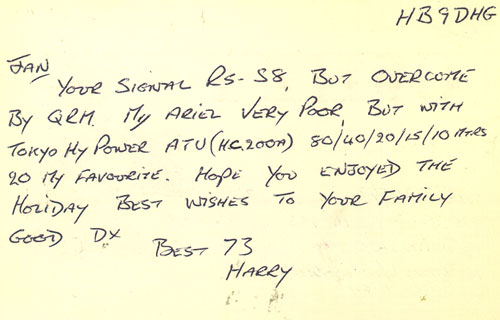 HB9DHG
JAN
YOUR SIGNAL RS-58, BUT OVERCOME
BY QRM. MY ARIEL VERY POOR, BUT WITH
TOKYO HY POWER ATU (HC200A) 80/40/20/15/10 MTRS
20 MY FAVOURITE. HOPE YOU ENJOYED THE
HOLIDAY BEST WISHES TO YOUR FAMILY
GOOD DX
BEST 73
HARRY